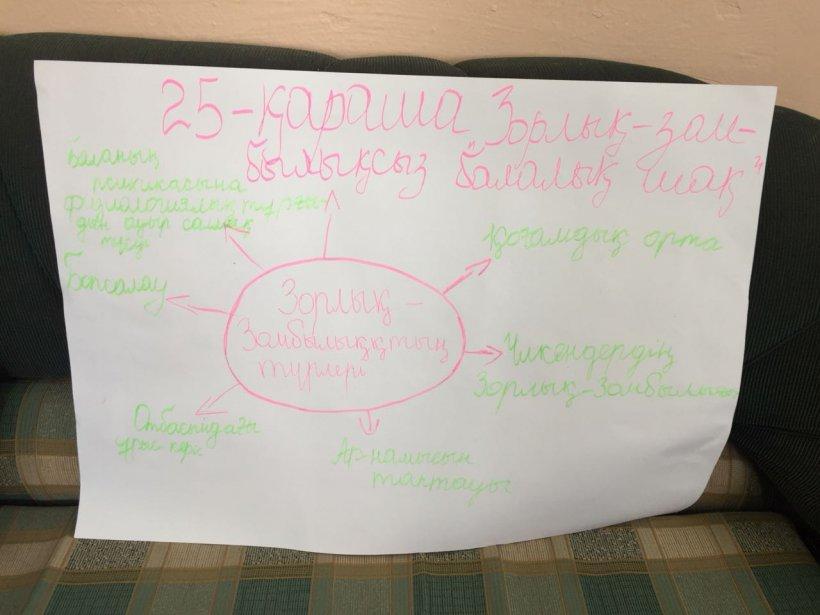 25-қараша "Зорлық-зом-
былықсыз балалық шақ"
Баланың
психикасына
физиологиялық тұрғы-
дын ауыр салмақ
түсуі
Қоғамдық орта
Бопсалау
Зорлық -
Замбылықтың
түрлері
Үлкендердің
Зорлық-Замбылығы
Отбасындағы
ұрыс-керіс
Ар-намысын
таптауы